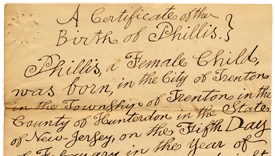 A Certificate of the
Birth of Phillis.}
Phillis, a Female Child,
was born, in the City of Trenton
in the Township of Trenton in the
County of Hunterdon in the State
of New-Jersey, on the Fifth Day
of February in the Year of